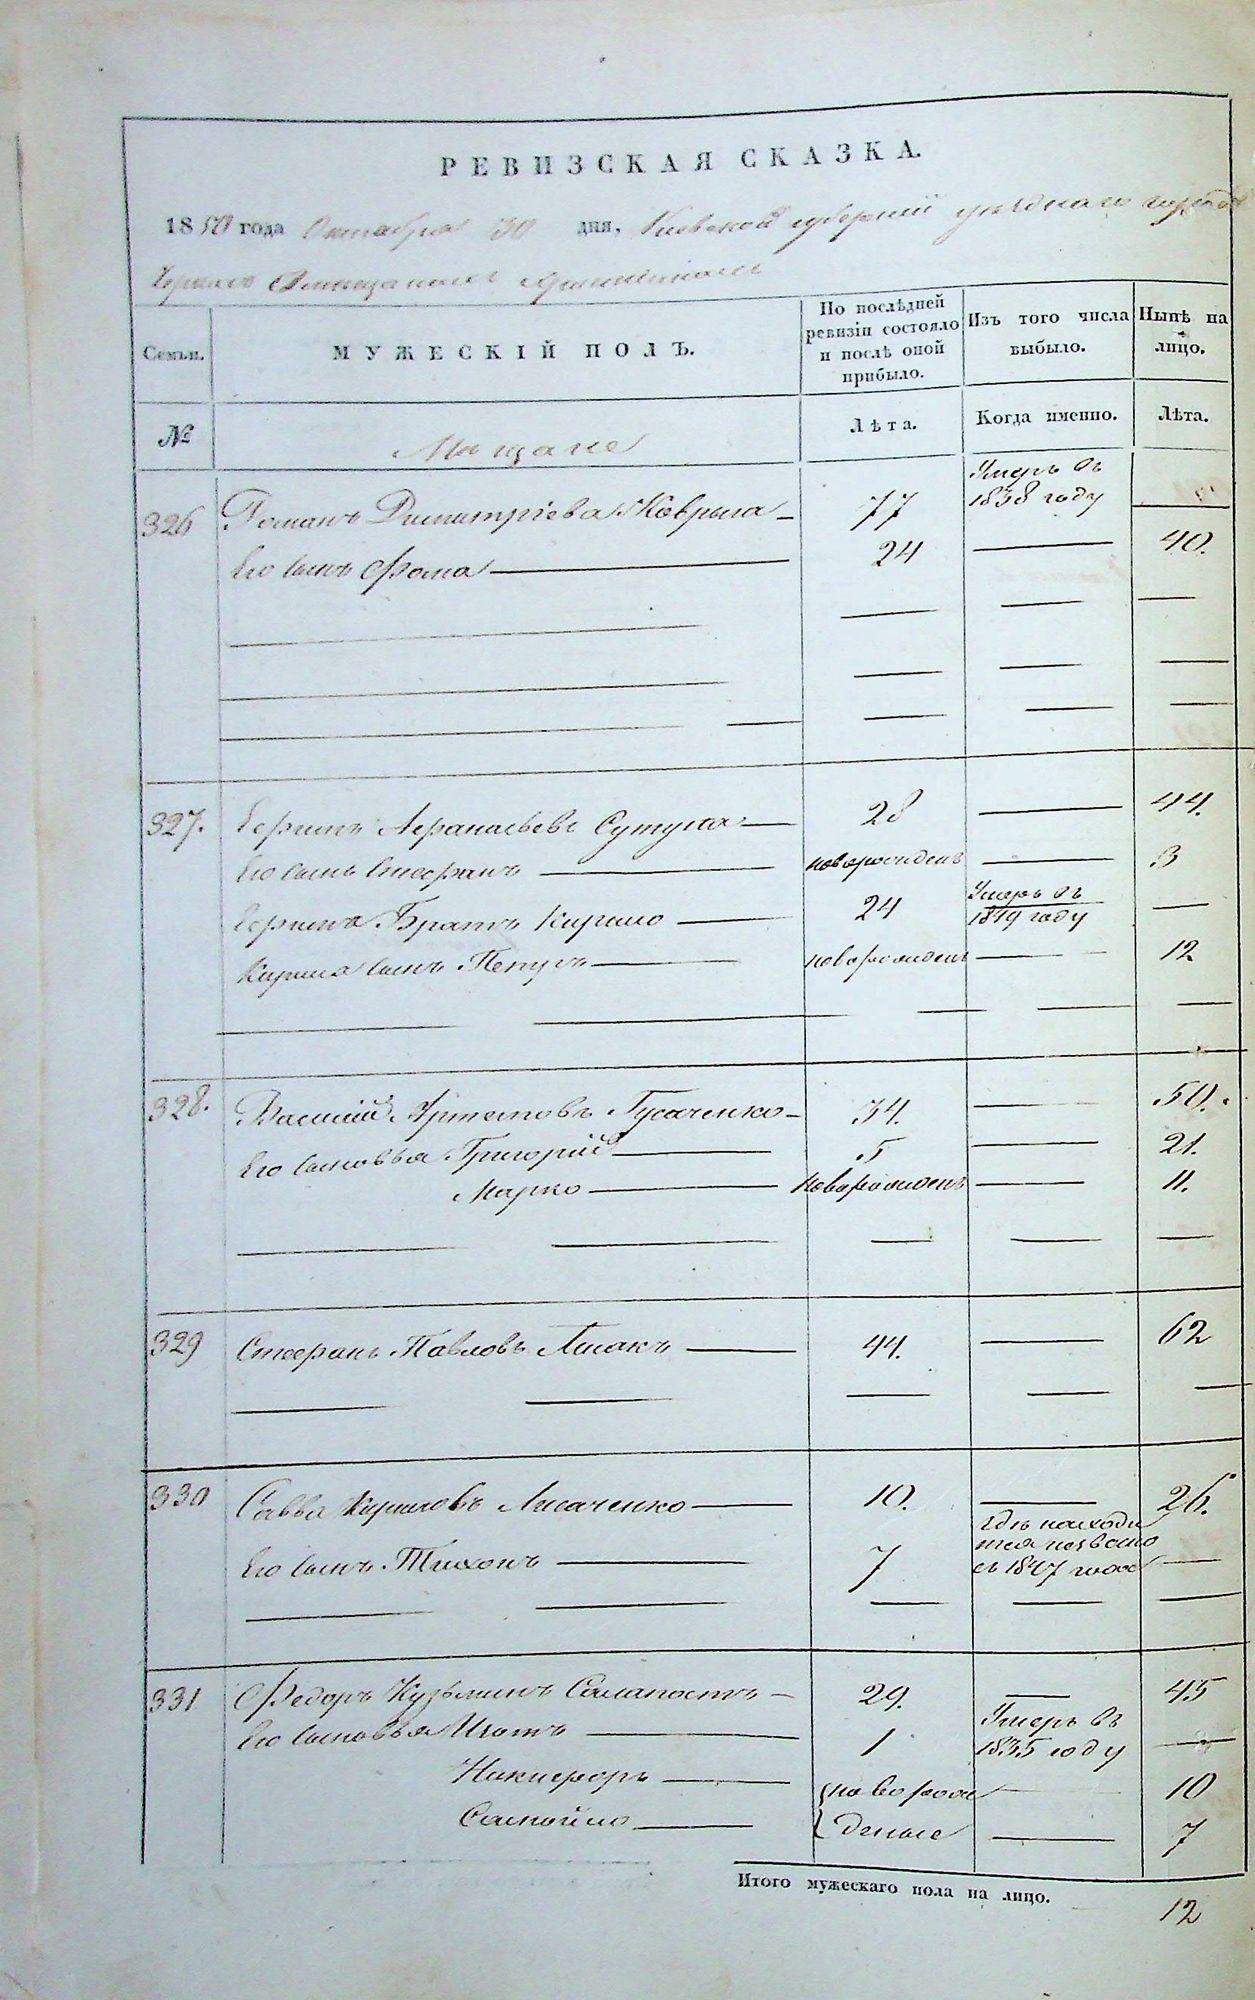 РЕВИЗСКАЯ СКАЗКА.
1850 года Октября 30 дня, Киевской губерніи уѣзднаго города
Черкасъ о мѣщанахъ христіанахъ
Семьи. МУЖЕСКІЙ ПОЛЪ. По послѣдней ревизіи состояло и послѣ оной прибыло. Изъ того числа выбыло. Нынѣ на лицо.
№ Мѣщане Лѣта. Когда именно. Лѣта.
326 Романъ Димитріевъ Коврыга 77 Умеръ въ 1838 году
Его сынъ Фома 24 40.
327. Ефимъ Афанасьевъ Сутуга 28 44.
Его сынъ Стефанъ новорожденъ 3
Ефима Братъ Кирило 24 Умеръ въ 1849 году
Кирила сынъ Петръ новорожденъ 12
328. Василій Артемовъ Гусаченко 34. 50.
Его сыновья Григорій 5 21.
Марко новорожденъ 11.
329 Стефанъ Павловъ Лысакъ 44. 62
330 Савва Кириловъ Лисаченко 10. 26.
Его сынъ Тихонъ 7 гдѣ находится неизвѣстно съ 1847 года
331 Федоръ Кузьминъ Салапостъ 29. 45
Его сыновья Игнатъ 1 Умеръ въ 1835 году
Никифоръ новорож 10
Самойло денные 7
Итого мужескаго пола на лицо. 12